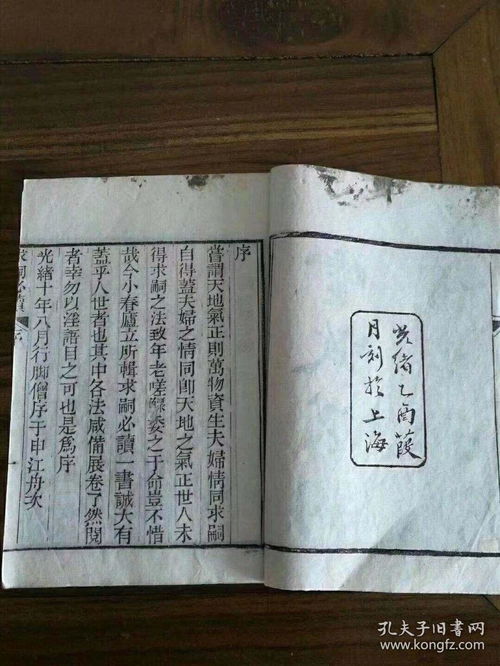 光緒乙酉葭
月刻於上海
序
嘗謂天地氣正則萬物資生夫婦情同求嗣
自得蓋夫婦之情同卽天地之氣正世人未
得求嗣之法致年老嗟委之于命豈不惜
哉今小春廬立所輯求嗣必讀一書誠大有
蓋乎人世者也其中各法咸備展卷了然閱
者幸勿以淫語目之可也是爲序
光緒十年八月行脚僧序于申江舟次
求嗣必讀 序 一
孔夫子旧书网
www.kongfz.com